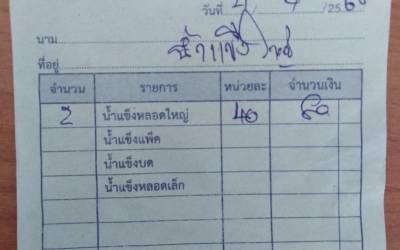 วันที่ / /25
นาม
ที่อยู่
จำนวน รายการ หน่วยละ จำนวนเงิน
2 น้ำแข็งหลอดใหญ่ 40 80
น้ำแข็งแพ็ค
น้ำแข็งบด
น้ำแข็งหลอดเล็ก